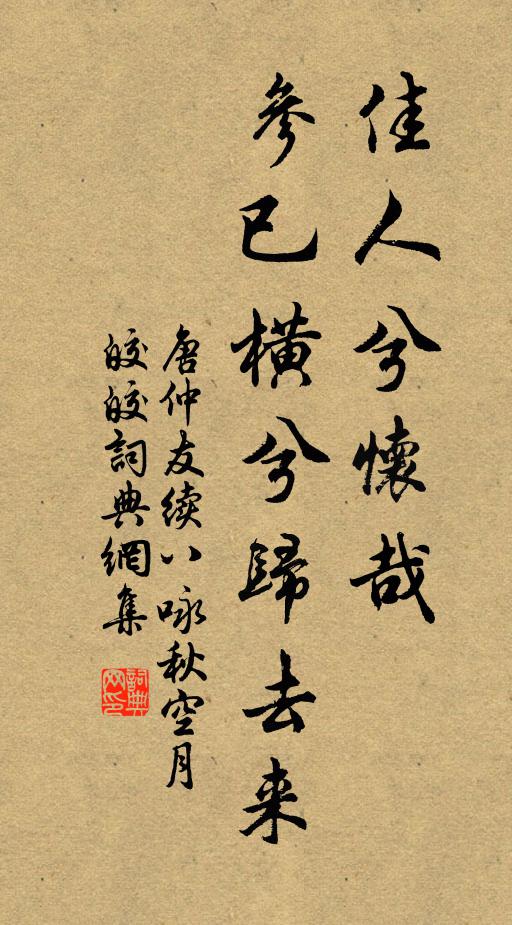 佳人兮懷哉
參已橫兮歸去来
唐仲友續八咏秋空月
皎皎詞典網集
詞典网印